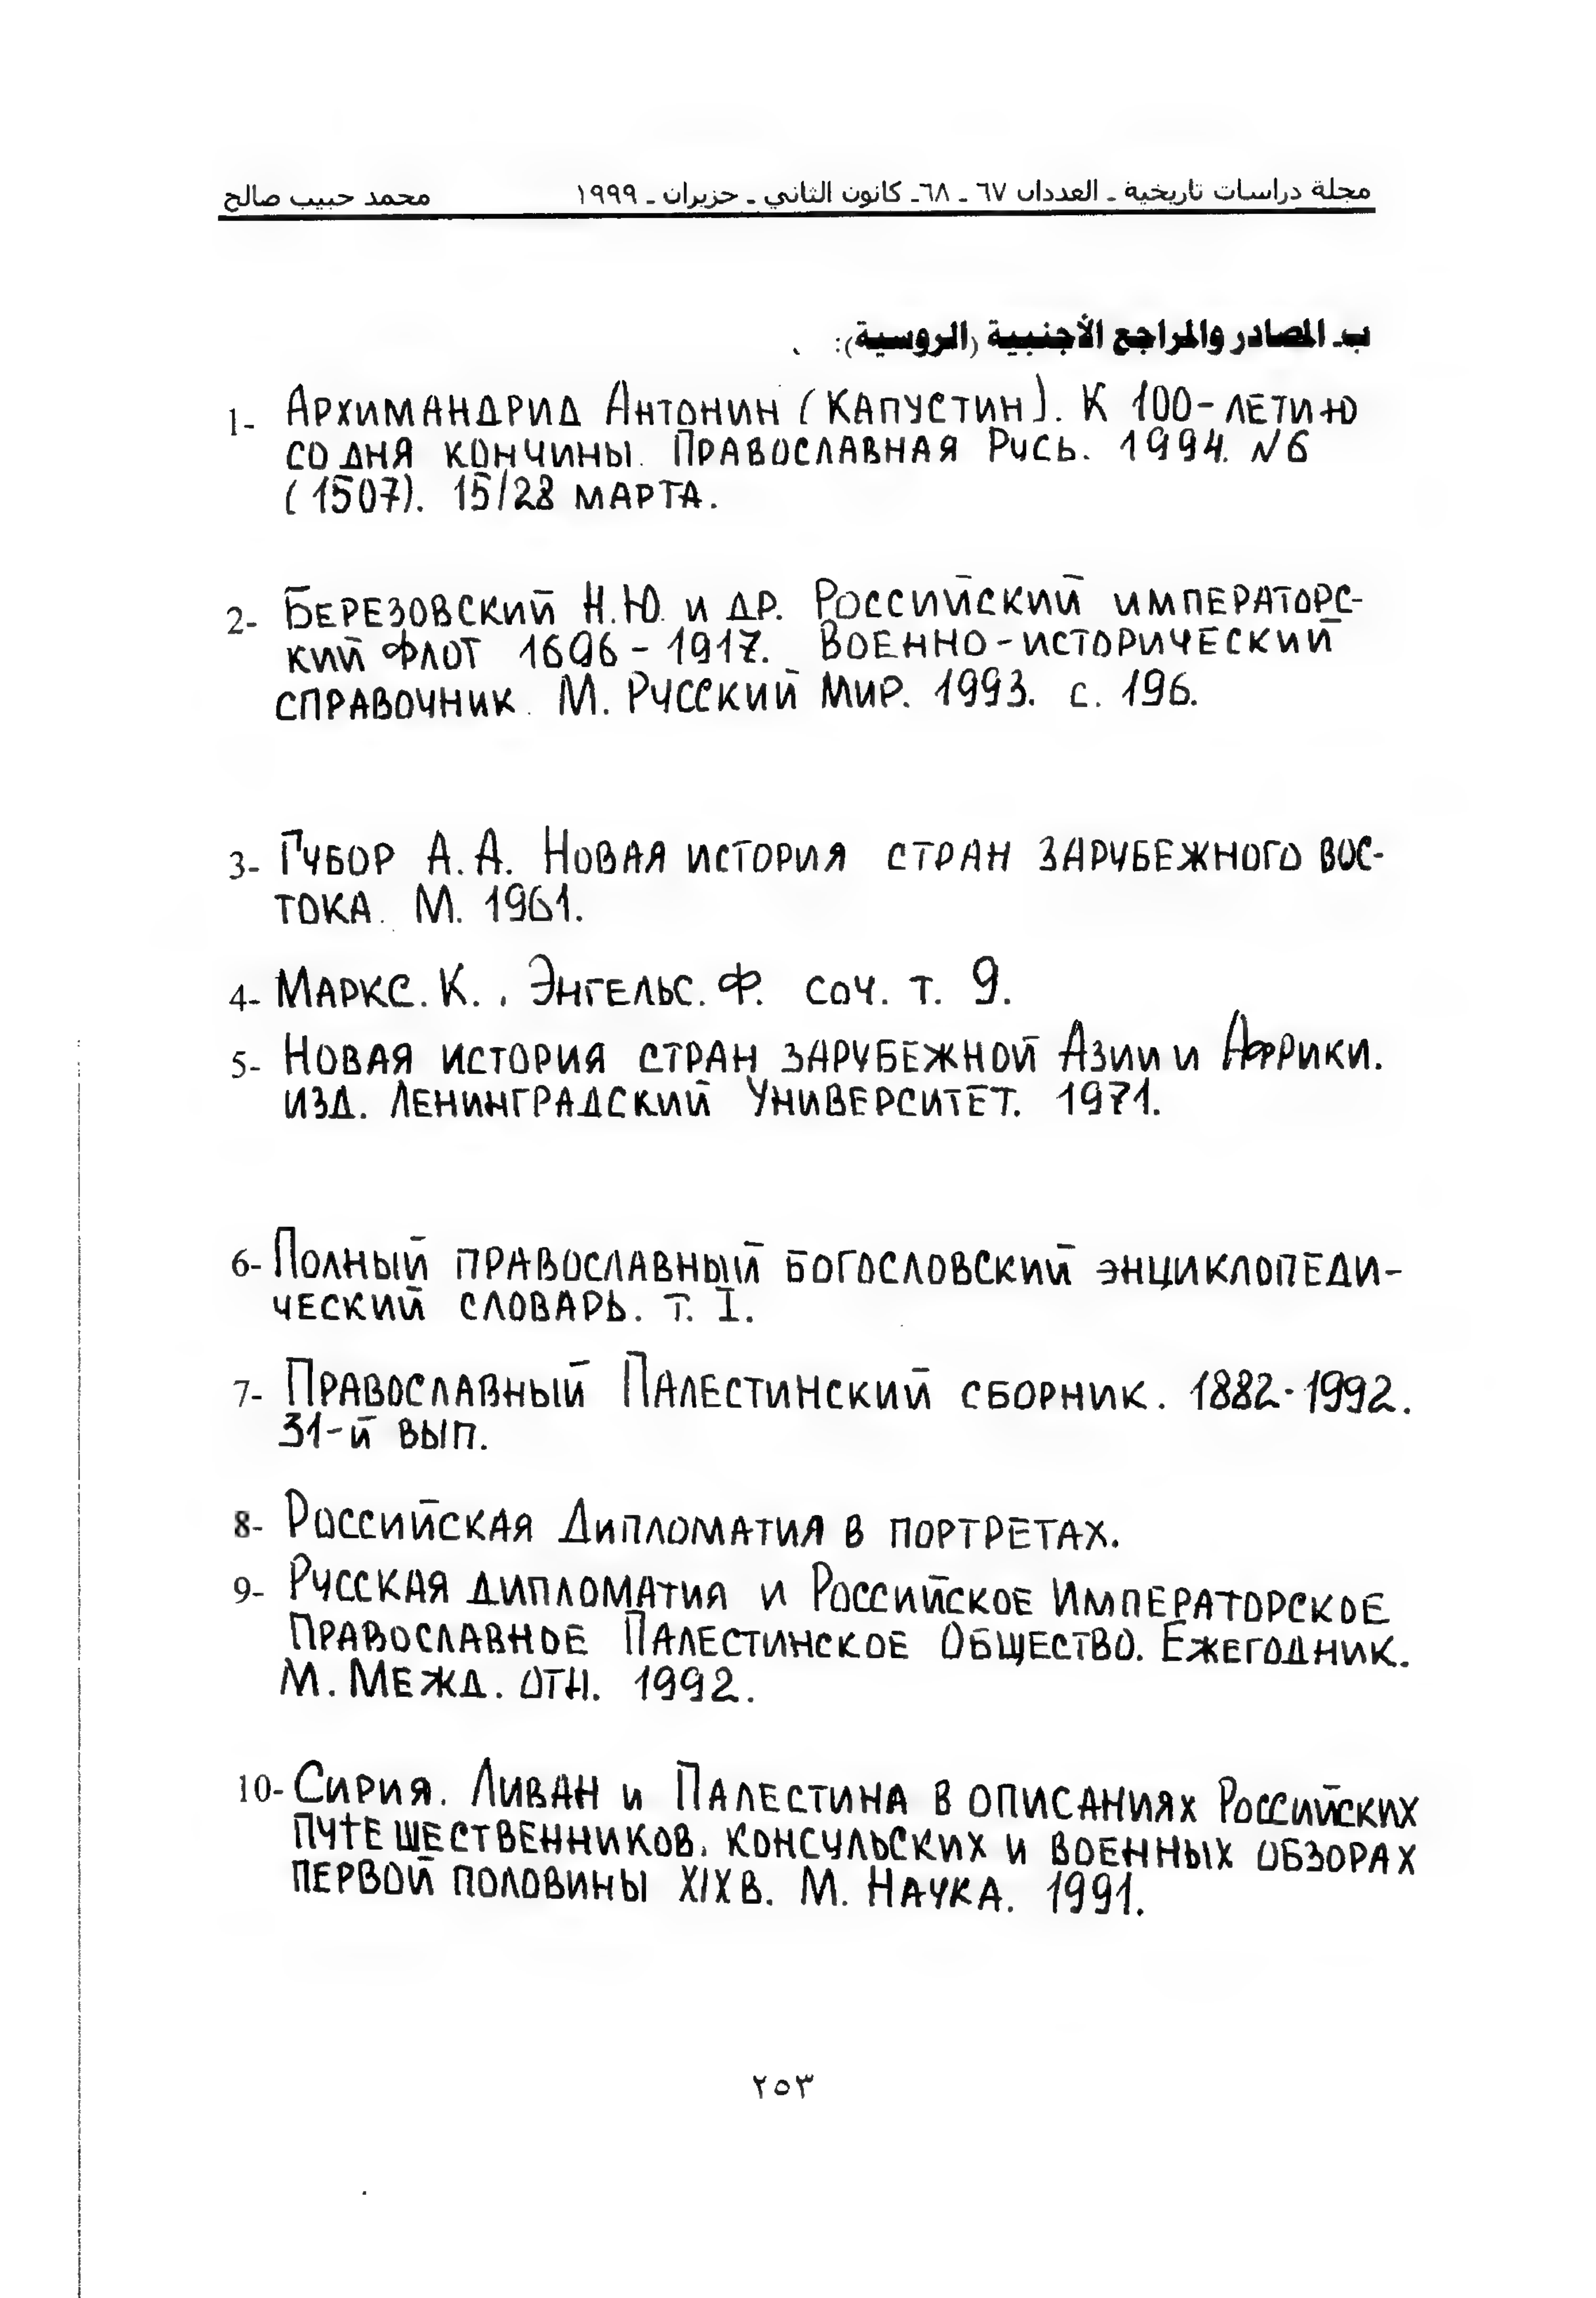 مجلة دراسات تاريخية ـ العددان ٦٧ ـ ٦٨ـ كانون الثاني ـ حزيران ـ ١٩٩٩ محمد حبيب صالح
ب ـ المصادر والمراجع الأجنبية (الروسية):
1- Архимандрид Антонин (Капустин). К 100-летию
со дня кончины. Православная Русь. 1994. N6
(1507). 15/28 марта.
2- Березовский Н.Ю. и др. Российский императорс-
кий флот 1696-1917. Военно-исторический
справочник. М. Русский Мир. 1993. с. 196.
3- Губор А.А. Новая история стран зарубежного вос-
тока. М. 1961.
4- Маркс. К., Энгельс. Ф. соч. т. 9.
5- Новая история стран зарубежной Азии и Африки.
изд. Ленинградский Университет. 1971.
6- Полный православный богословский энциклопеди-
ческий словарь. т. I.
7- Православный Палестинский сборник. 1882-1992.
31-й вып.
8- Российская Дипломатия в портретах.
9- Русская дипломатия и Российское Императорское
Православное Палестинское Общество. Ежегодник.
М. Межд. отн. 1992.
10- Сирия. Ливан и Палестина в описаниях Российских
путешественников. консульских и военных обзорах
первой половины XIX в. М. Наука. 1991.
٢٥٣